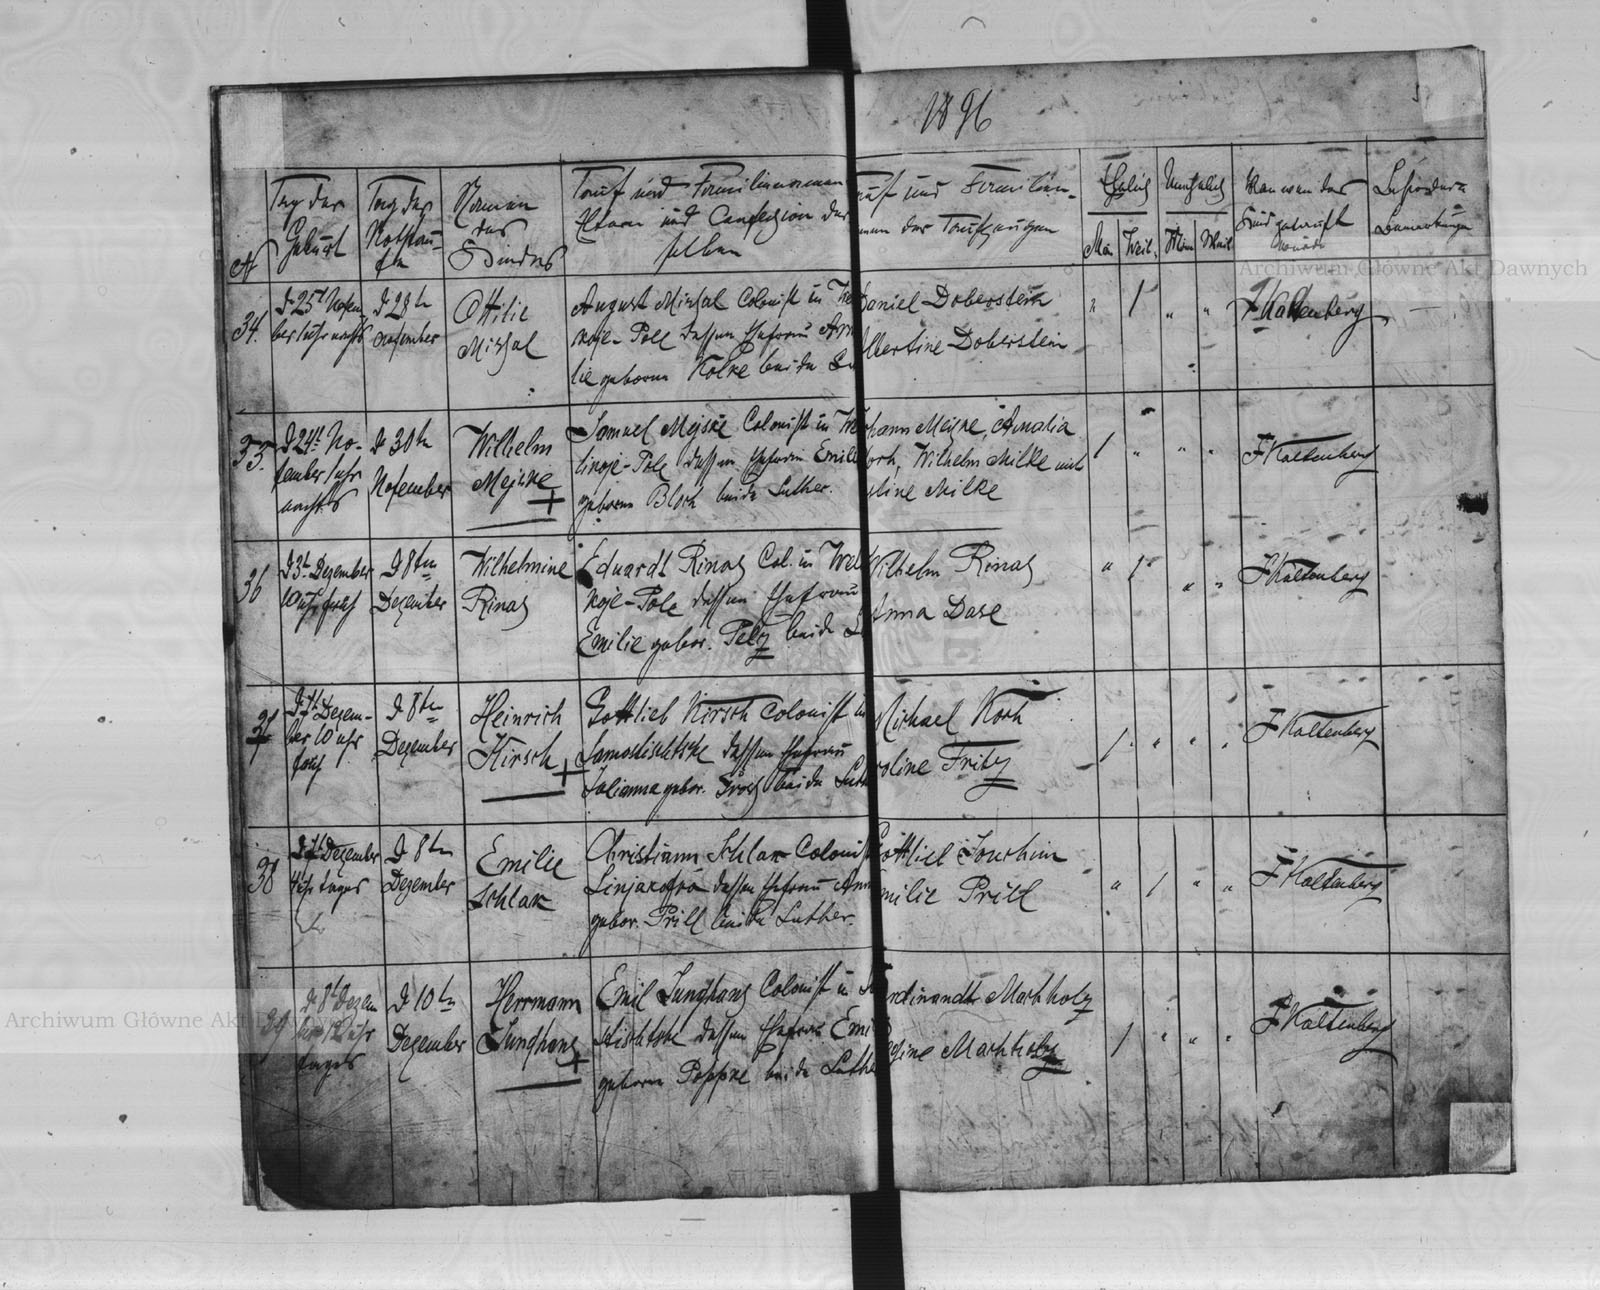 1896
№
Tag der
Geburt
Tag der
Nothtau-
fe
Namen
des
Kindes
Tauf und Familiennamen
Eltern und Confession der
selben
Tauf und Familien-
namen der Taufzeugen
Ehelich
Män. Weib.
Unehelich
Män Weib
Von wem das
Kind getauft
wurde
Besondere
Bemerkungen
34.
D 25t Nofem
ber 1 uhr nachts
D 28tn
Nofember
Ottilie
Mishal
August Mishal Colonist in We
koje-Pole dessen Ehefrau Am
lie geboren Kolke beide Lu
Daniel Doberstein
Albertine Doberstein
" 1 " "
F Kaltenberg
35.
D 24t. No-
fember 1 uhr
nachts
D 30tn
Nofember
Wilhelm
Mejske
Samuel Mejske Colonist in We
likoje-Pole dessen Ehefrau Emilie
geboren Block beide Luther.
Johann Mejske, Amalia
Wilhelm Milke und
Milke
1 " " "
F Kaltenberg
36
D 3t. Dezember
10 uhr früh
D 8ten
Dezember
Wilhelmine
Rinas
Eduardt Rinas Col. in Wel
koje-Pole dessen Ehefrau
Emilie gebor. Pelz beide L
Wilhelm Rinas
Anna Dase
" 1 " "
F Kaltenberg
37
D 7t Dezem-
ber 10 uhr
früh
D 8ten
Dezember
Heinrich
Hirsch
Gottlieb Hirsch Colonist in
dessen Ehefrau
Julianna gebor. beide Luth
Michael Koch
roline Fritz
1 " " "
F Kaltenberg
38
D 7t Dezember
4 uhr tages
D 8ten
Dezember
Emilie
Schlak
Christiann Schlak Colonist
dessen Ehefrau Ann
gebor. Prill beide Luther.
Gottliel Joachim
milie Prill
" 1 " "
F Kaltenberg
39
D 8t Dezem
ber 12 uhr
tages
D 10tn
Dezember
Herrmann
Junghans
Emil Junghans Colonist in
dessen Ehefrau Emi
geboren Poppke beide Luthe
rdinandt Markholz
gine Markholz
1 " " "
F Kaltenberg
Archiwum Główne Akt Dawnych
Archiwum Główne Akt Dawnych